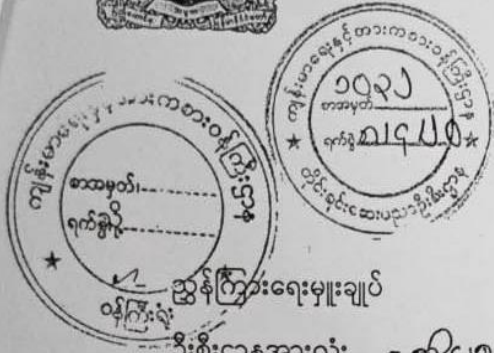 ကျန်းမာရေးနှင့်အားကစားဝန်ကြီးဌာန
၁၀၃၂
စာအမှတ်
ရက်စွဲ
တိုင်းရင်းဆေးပညာဦးစီးဌာန
ကျန်းမာရေးနှင့်အားကစားဝန်ကြီးဌာန
စာအမှတ်၊
ရက်စွဲ
ဝန်ကြီးရုံး
သို့
ညွှန်ကြားရေးမှူးချုပ်
ဦးစီးဌာနအားလုံး